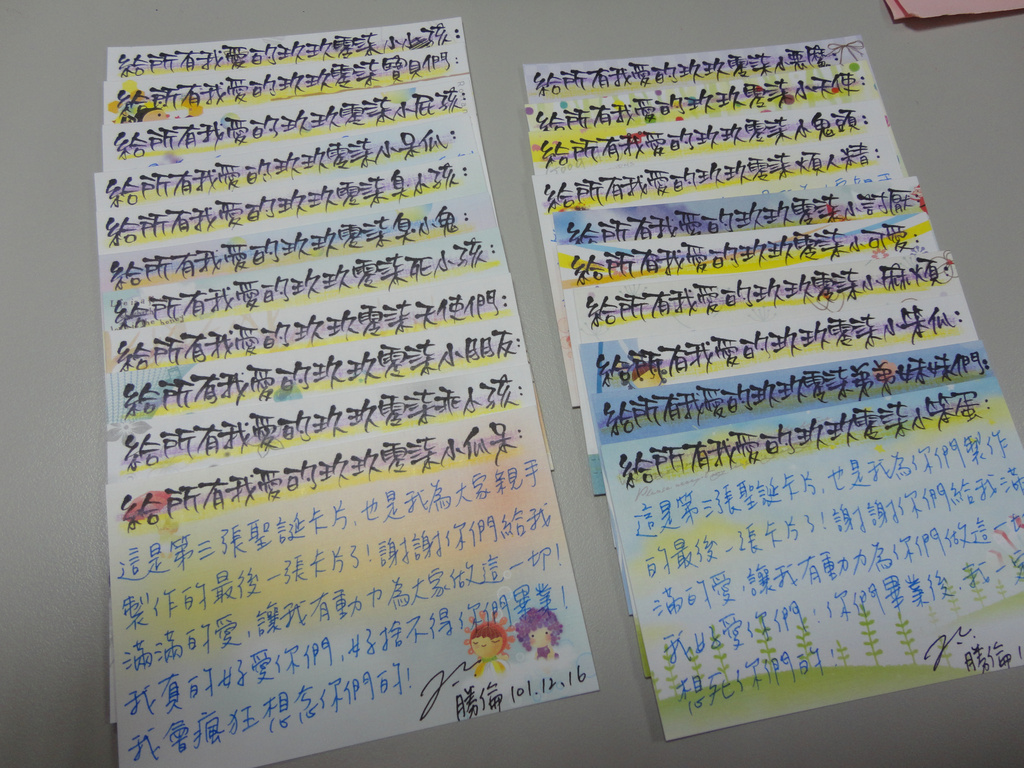 給所有我愛的玖玖零柒小小孩：
給所有我愛的玖玖零柒寶貝們：
給所有我愛的玖玖零柒小屁孩：
給所有我愛的玖玖零柒小呆瓜：
給所有我愛的玖玖零柒臭小孩：
給所有我愛的玖玖零柒臭小鬼：
給所有我愛的玖玖零柒死小孩：
給所有我愛的玖玖零柒天使們：
給所有我愛的玖玖零柒小朋友：
給所有我愛的玖玖零柒乖小孩：
給所有我愛的玖玖零柒小瓜呆：
這是第三張聖誕卡片，也是我為大家親手
製作的最後一張卡片了！謝謝你們給我
滿滿的愛，讓我有動力為大家做這一切！
我真的好愛你們，好捨不得你們畢業！
我會瘋狂想念你們的！
勝倫 101.12.16
給所有我愛的玖玖零柒小惡魔：
給所有我愛的玖玖零柒小天使：
給所有我愛的玖玖零柒小鬼頭：
給所有我愛的玖玖零柒煩人精：
給所有我愛的玖玖零柒小討厭：
給所有我愛的玖玖零柒小可愛：
給所有我愛的玖玖零柒小麻煩：
給所有我愛的玖玖零柒小笨瓜：
給所有我愛的玖玖零柒弟弟妹妹們：
給所有我愛的玖玖零柒小笨蛋：
這是第三張聖誕卡片，也是我為你們製作
的最後一張卡片了！謝謝你們給我滿
滿的愛，讓我有動力為你們做這一
我好愛你們！你們畢業後，我一定
想死你們的！
勝倫 1